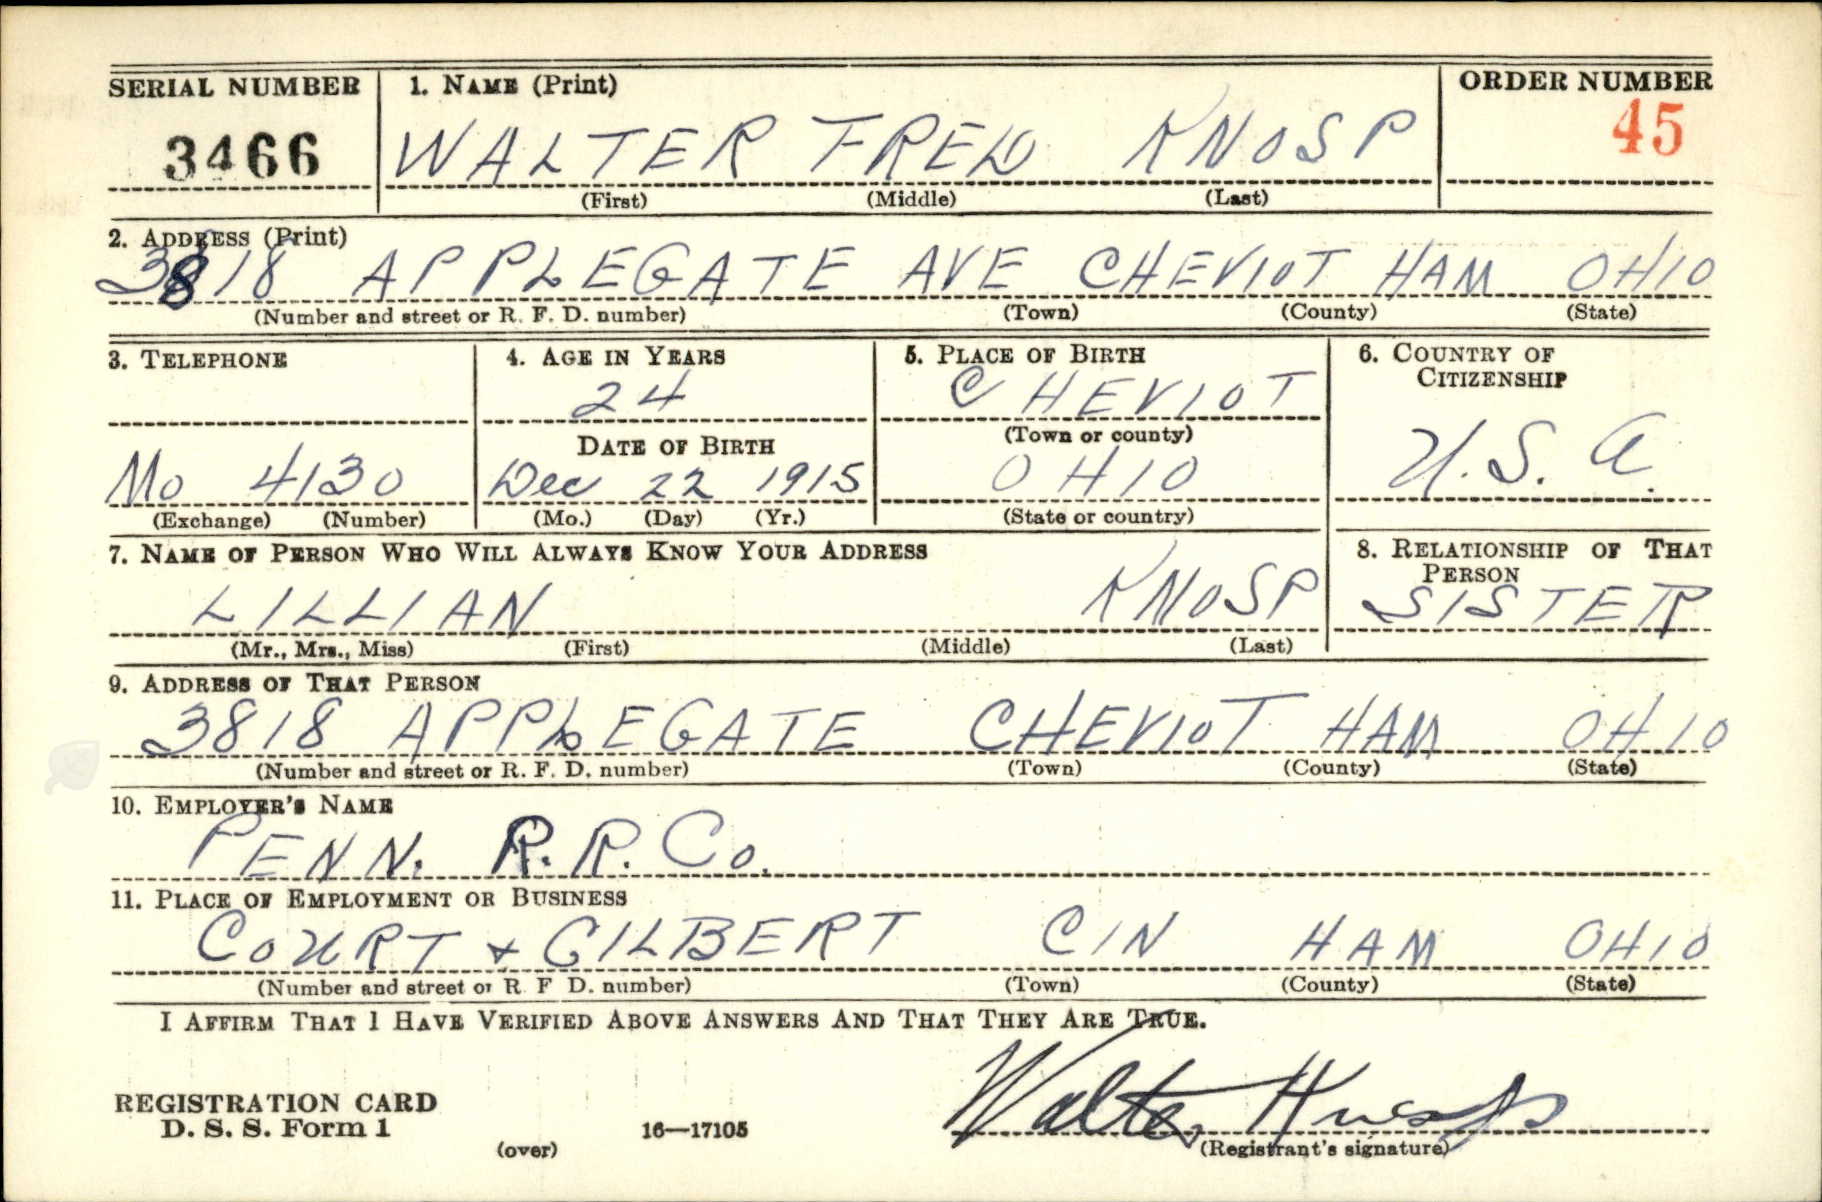 SERIAL NUMBER 1. NAME (Print) ORDER NUMBER
3466 WALTER FRED KNOSP 45
(First) (Middle) (Last)
2. ADDRESS (Print)
3818 APPLEGATE AVE CHEVIOT HAM OHIO
(Number and street or R. F. D. number) (Town) (County) (State)
3. TELEPHONE 4. AGE IN YEARS 5. PLACE OF BIRTH 6. COUNTRY OF
CITIZENSHIP
24 CHEVIOT
DATE OF BIRTH (Town or county)
Mo 4130 Dec 22 1915 OHIO U.S.A.
(Exchange) (Number) (Mo.) (Day) (Yr.) (State or country)
7. NAME OF PERSON WHO WILL ALWAYS KNOW YOUR ADDRESS 8. RELATIONSHIP OF THAT
PERSON
LILLIAN KNOSP SISTER
(Mr., Mrs., Miss) (First) (Middle) (Last)
9. ADDRESS OF THAT PERSON
3818 APPLEGATE CHEVIOT HAM OHIO
(Number and street or R. F. D. number) (Town) (County) (State)
10. EMPLOYER'S NAME
PENN. R.R. Co.
11. PLACE OF EMPLOYMENT OR BUSINESS
COURT + GILBERT CIN HAM OHIO
(Number and street or R F D. number) (Town) (County) (State)
I AFFIRM THAT I HAVE VERIFIED ABOVE ANSWERS AND THAT THEY ARE TRUE.
REGISTRATION CARD
D. S. S. Form 1 16—17105 Walter Knosp
(over) (Registrant's signature)